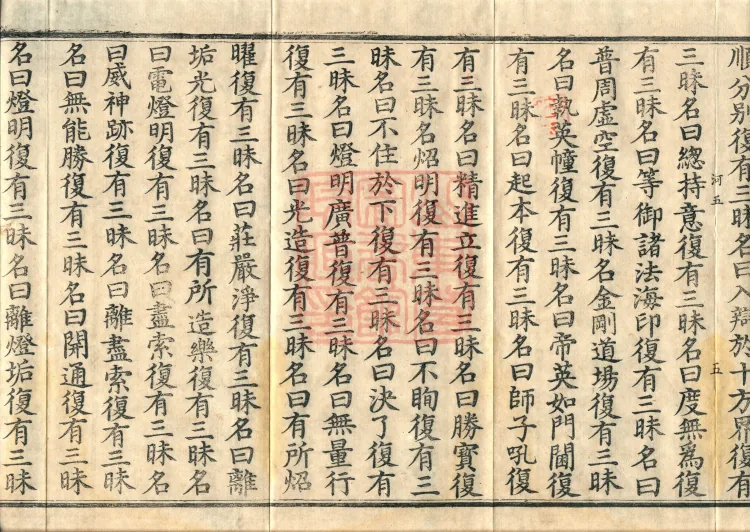 順分別復有三昧名曰入辯於十方界復有
三昧名曰總持意復有三昧名曰度無爲復
有三昧名曰等御諸法海印復有三昧名曰
普周虛空復有三昧名金剛道場復有三昧
名曰執英幢復有三昧名曰帝英如門閫復
有三昧名曰起本復有三昧名曰師子吼復
有三昧名曰精進立復有三昧名曰勝寶復
有三昧名炤明復有三昧名曰不眴復有三
昧名曰不住於下復有三昧名曰決了復有
三昧名曰燈明廣普復有三昧名曰無量行
復有三昧名曰光造復有三昧名曰有所炤
曜復有三昧名曰莊嚴淨復有三昧名曰離
垢光復有三昧名曰有所造樂復有三昧名
曰電燈明復有三昧名曰盡索復有三昧名
曰威神跡復有三昧名曰離盡索復有三昧
名曰無能勝復有三昧名曰開通復有三昧
名曰燈明復有三昧名曰離燈垢復有三昧
河五
五